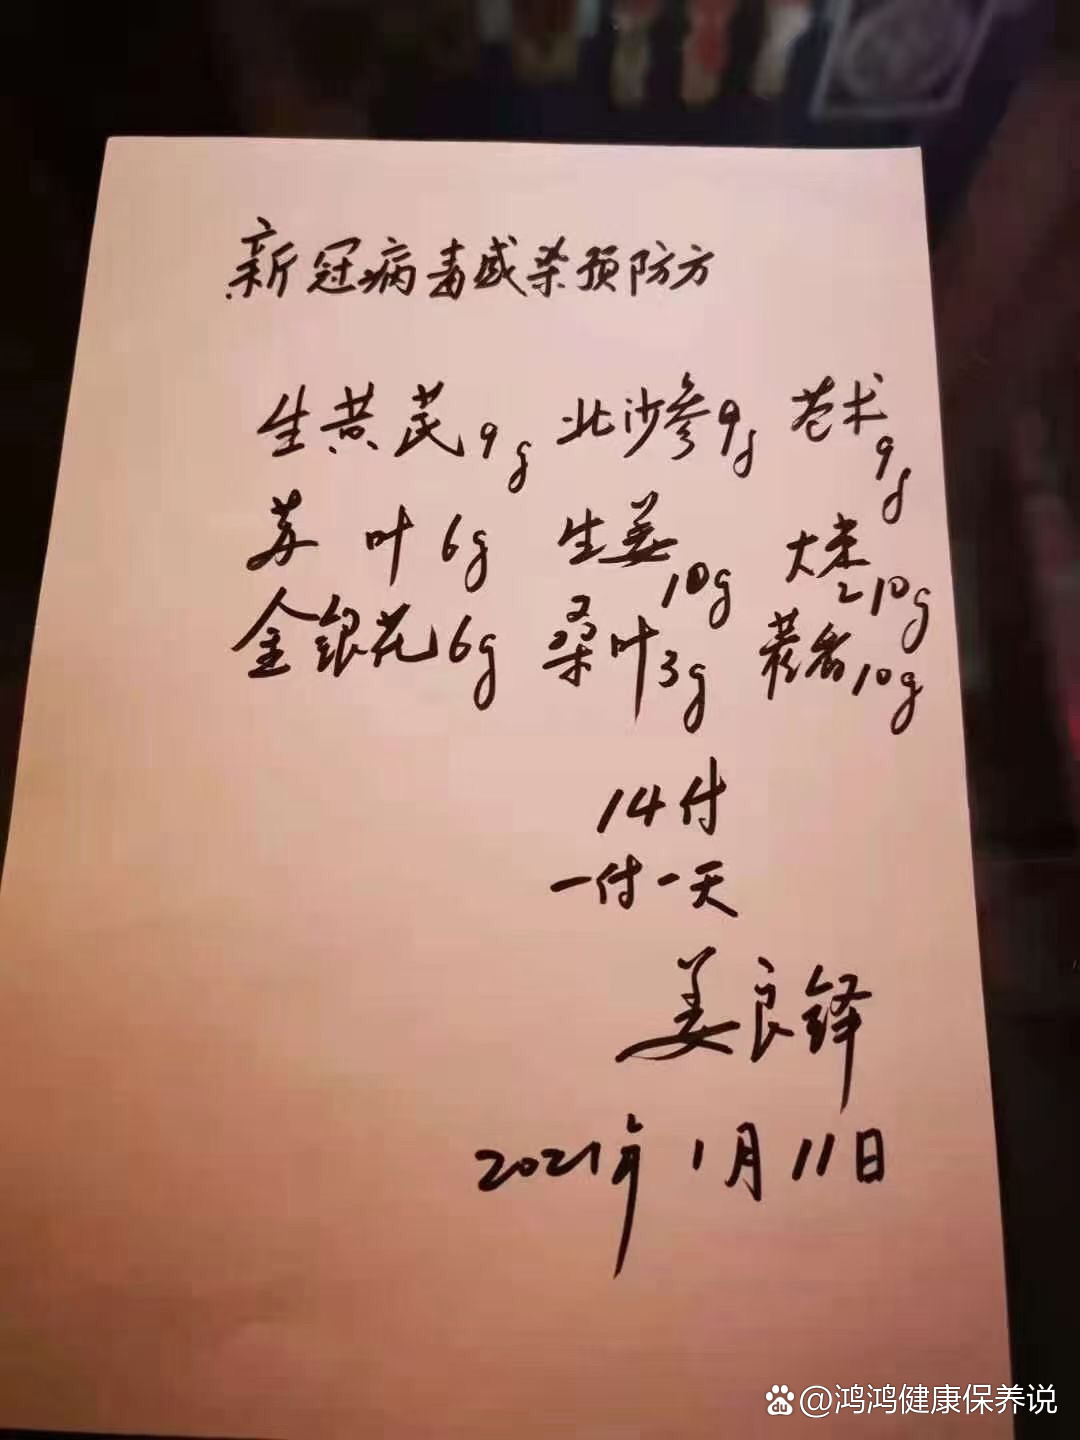 新冠病毒感染预防方
生黄芪9g 北沙参9g 苍术9g
苏叶6g 生姜10g 大枣10g
金银花6g 桑叶3g 藿香10g
14付
一付一天
姜良铎
2021年1月11日
@鸿鸿健康保养说